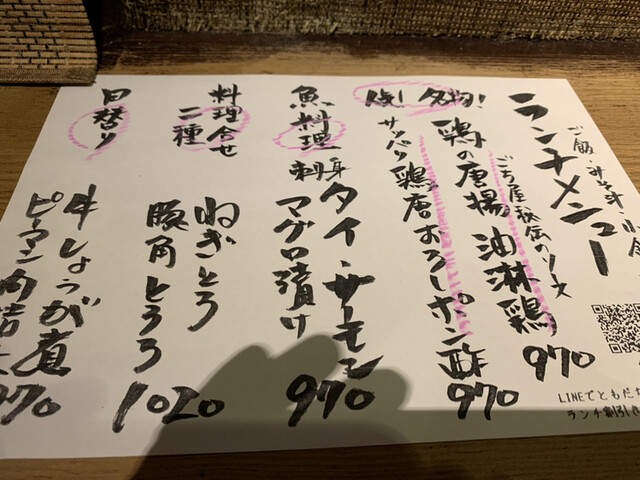 ランチメニュー
ご飯・みそ汁・小
名物!
ごち屋秘伝のソース
鶏の唐揚 油淋鶏
970
人気!
サッパリ鶏唐おろしポン酢
970
魚料理
刺身タイ・サーモン
マグロ漬け
970
料理合せ
二種
ねぎとろ
豚角とろろ
1020
日替り
牛しょうが煮
ピーマン肉詰
970
LINEでともだち
ランチ割引